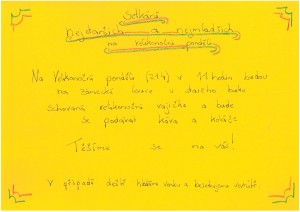 Setkání
nejstarších a nejmladších
na velikonoční pondělí
Na Velikonoční pondělí (21.4) v 11 hodin budou
na zámecké louce u starého buku
schovaná velikonoční vajíčka a bude
se podávat káva a koláče
Těšíme se na vás!
V případě deště hledání venku a